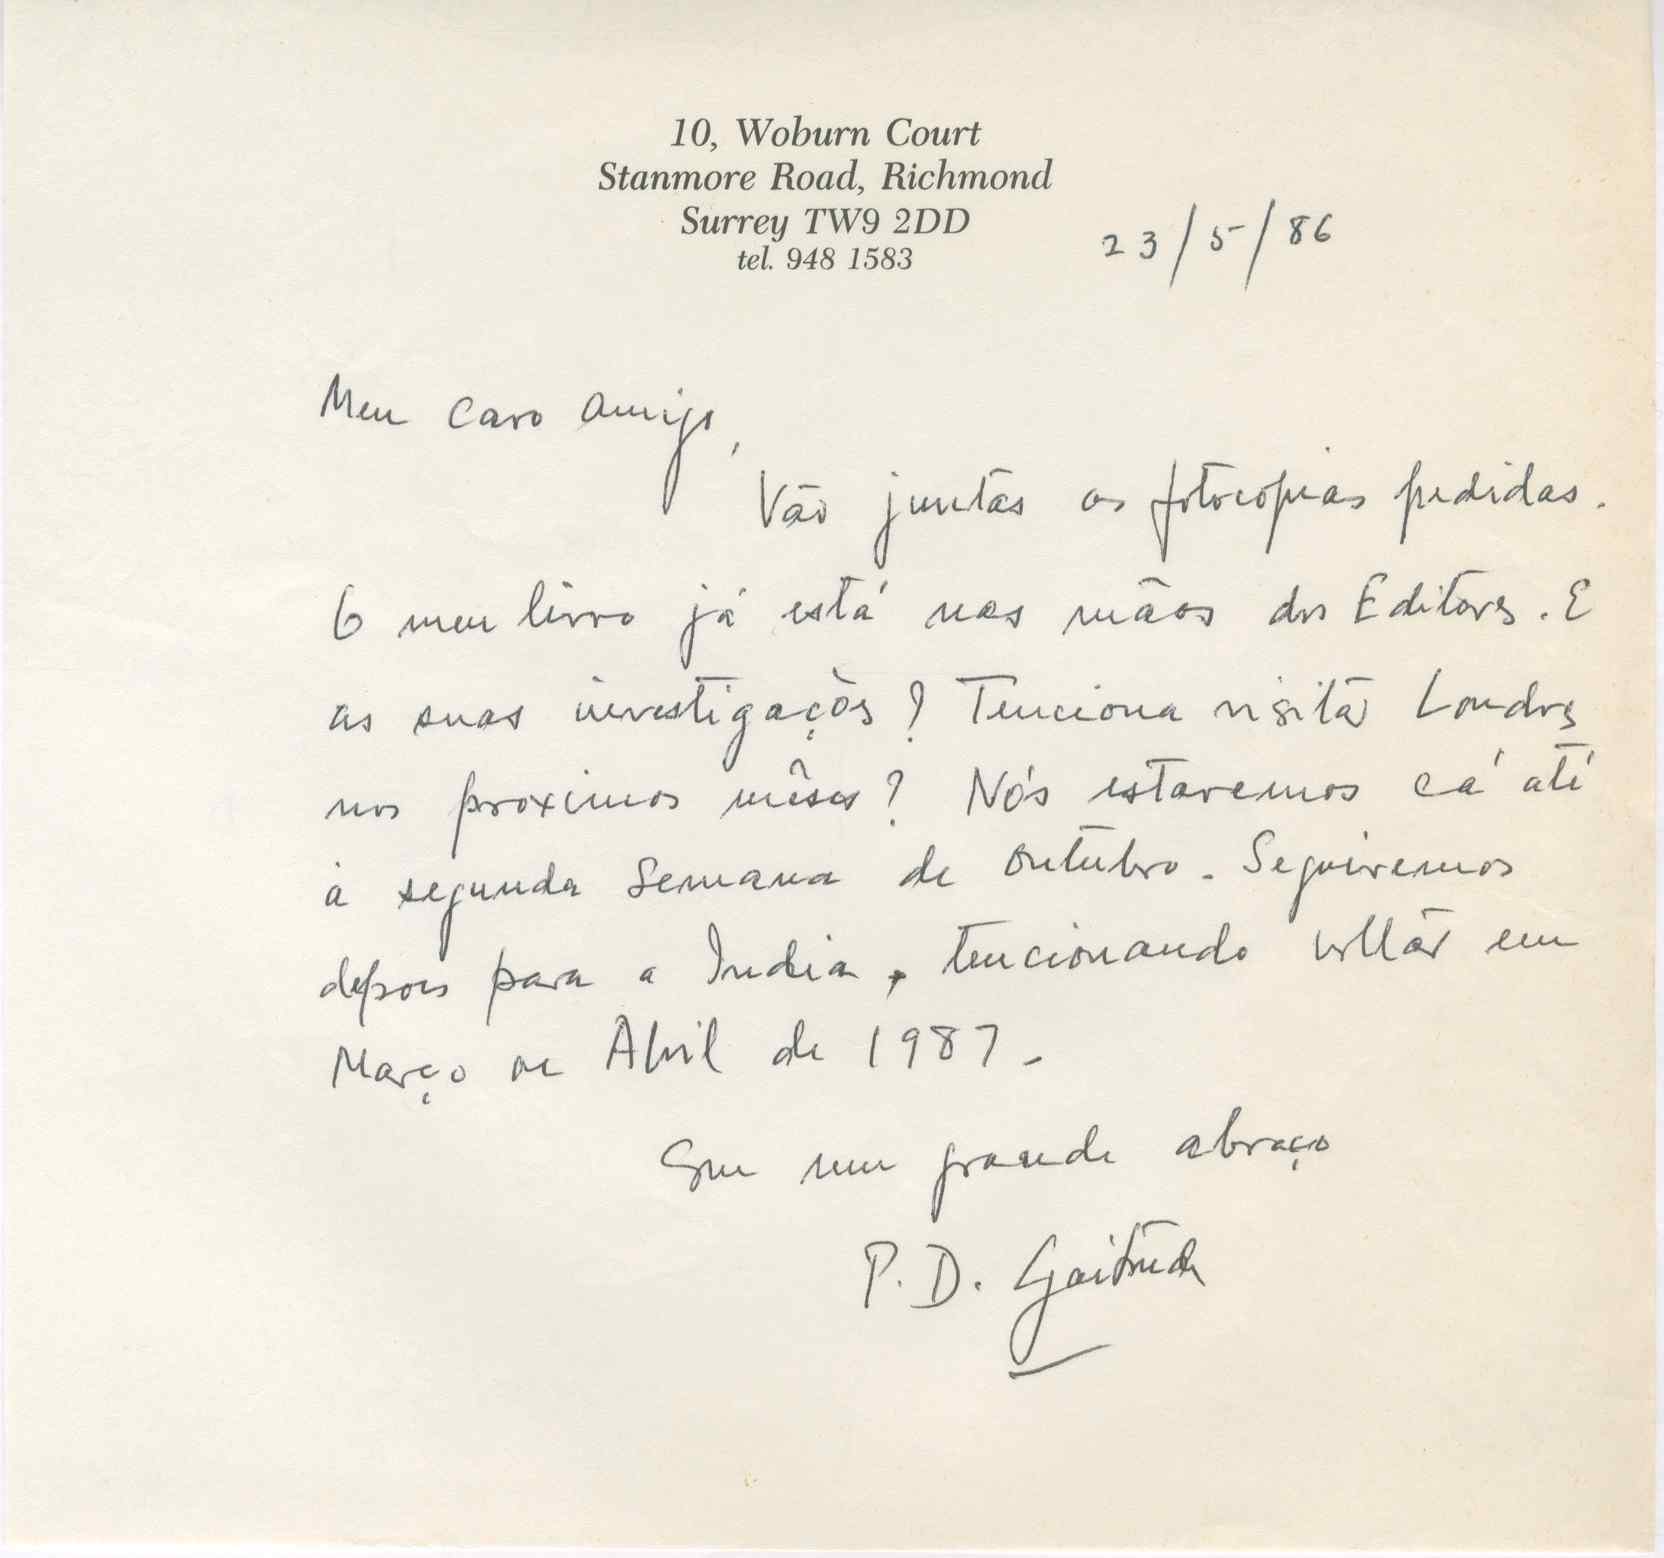 10, Woburn Court
Stanmore Road, Richmond
Surrey TW9 2DD
tel. 948 1583
23/5/86
Meu caro amigo,
Vão juntas as fotocopias pedidas.
O meu livro já está nas mãos dos Editores. E
as suas investigações? Tenciona visitar Londres
nos proximos mêses? Nós estaremos cá até
à segunda semana de outubro. Seguiremos
depois para a India, tencionando voltar em
Março ou Abril de 1987.
Com um grande abraço
P. D. Gaitonde